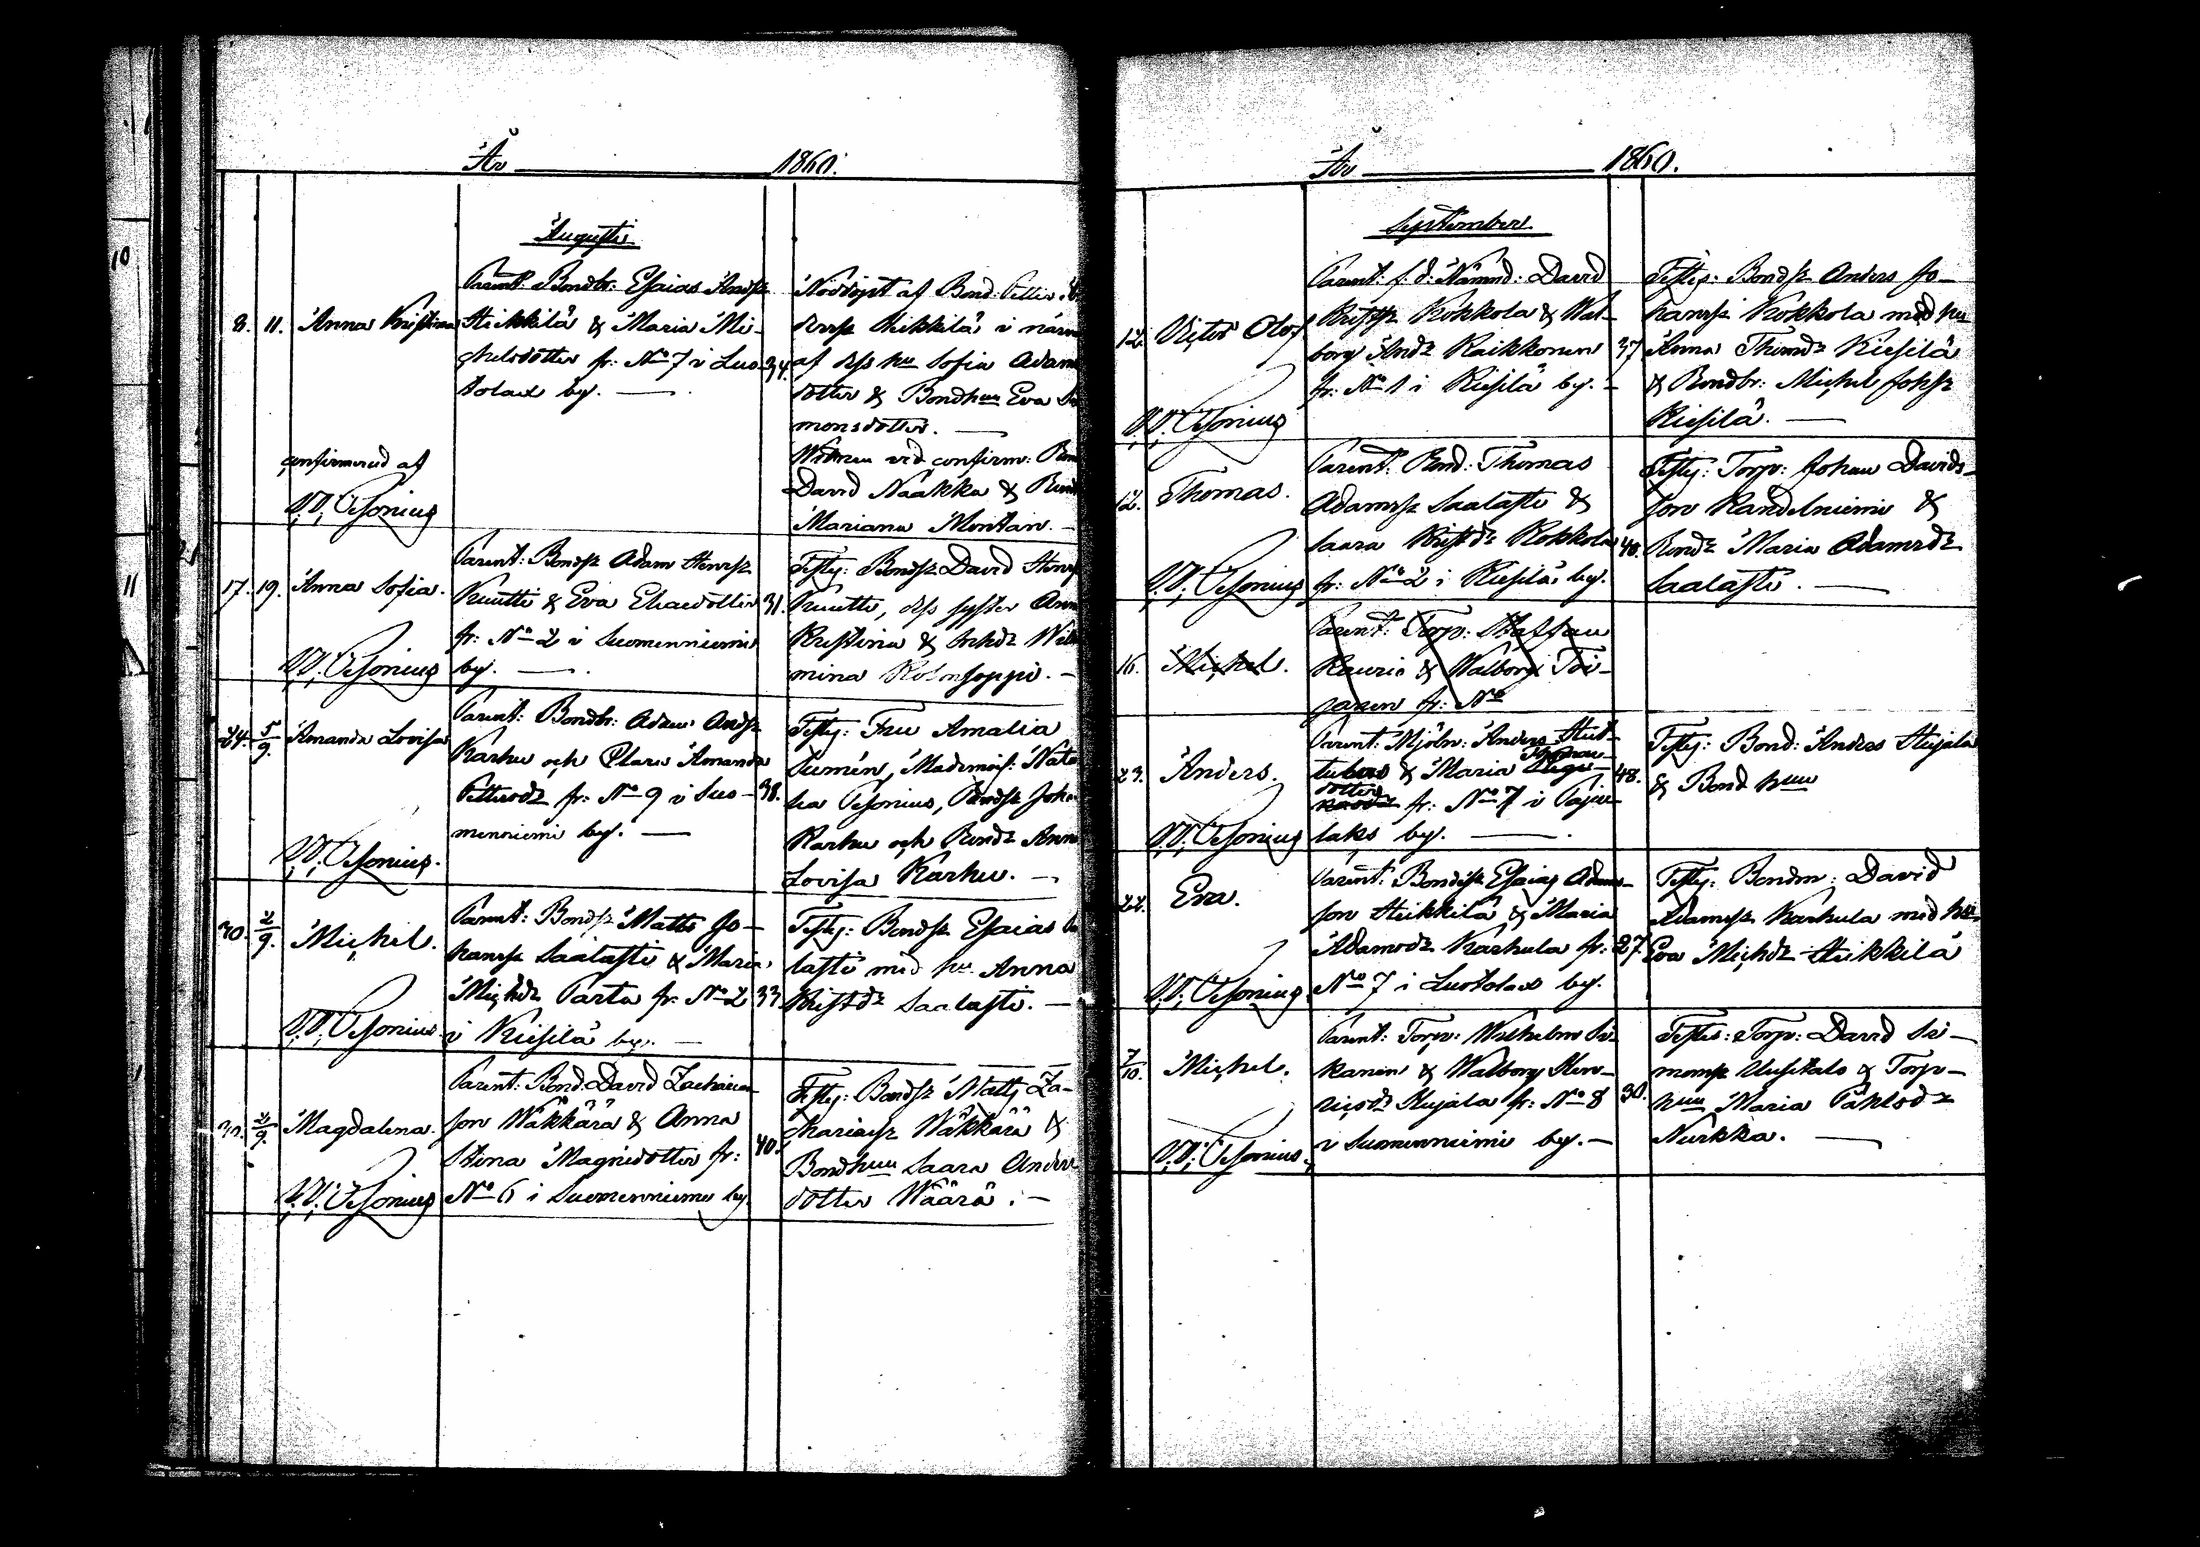 År 1860.
Augusti
8. 11. Anna Kristina
confirmerad af
V.V. Cesonius
Parent: Bondbr: Esaias Andsn
Heikkilä & Maria Mi-
chelsdotter fr: No 7 i Luo-
tolax by. —
34.
Nöddöpt af Bond Petter
Heikkilä i närv
af dess hu Sofia Adams
dotter & Bondhuu Eva Si
monsdotter. —
Wittnen vid confirm: Bon
David Naakka & Bond
Mariana Montan. —
17. 19. Anna Sofia.
V.V. Cesonius
Parent: Bondsn Adam Henrsn
Knutti & Eva Eliaedotter
fr: No 2 i Suomenniemi
by. —
31.
Testes: Bondsn David Henrs
Knutti, dess syster Ann
Kristina & Wil
mina
24. 5/9. Amanda Lovisa
V.V. Cesonius.
Parent: Bondbr: Adam Andsn
Karhu och Clara Amanda
Pettersdr fr: No 9 i Suo-
menniemi by. —
38.
Testes: Fru Amalia
Sumén, Mademois: Nata
lia Cesonius, Bondsn Joha
Karhu och Bondr Anna
Lovisa Karhu. —
30. 2/9. Michel.
V.V. Cesonius
Parent: Bondsn Matts Jo-
hansn Saalasti & Maria
Michdr Parta fr: No 2
i Kiesilä by. —
33
Testes: Bondsn Esaias Saa
lasti med hu Anna
Kristdr Saalasti. —
30. 2/9. Magdalena.
V.V. Cesonius
Parent: Bond: David Zacharias
son Wäkkärä & Anna
Stina Magnidotter fr:
No 6 i Suomenniemi by.
40.
Testes: Bondsn Matts Za-
chariassn Wäkkärä &
Bondhuu Saara Anders
dotter Wäärä. —
År 1860.
September
12. Victor Olof
V.V. Cesonius
Parent: f.d. Nämnd: David
Kristsn Kokkola & Wal-
borg Andr Kaikkonen
fr: No 1 i Kiesilä by. —
37
Testes: Bondsn Anders Jo-
hansn Kokkola med hu
Anna Thomdr Kiesilä
& Bondbr: Michel Johsn
Kiesilä. —
12. Thomas.
V.V. Cesonius
Parent: Bond: Thomas
Adamsn Saalasti &
Saara Kristdr Kokkola
fr: No 2 i Kiesilä by.
40.
Testes: Torp: Johan Davids-
son Kandelniemi &
Bondr Maria Adamsdr
Saalasti. —
16. Michel.
Parent: Torp: Staffan
Kaurio & Walborg Toi-
janen fr: No
23. Anders.
V.V. Cesonius
Parent: Mjöln: Anders
& Maria
dotter fr: No 7 i Paju-
laks by. —
48.
Testes: Bond: Anders Kujala
& Bond huu
22. Eva.
V.V. Cesonius
Parent: Bondsn Esaias Adams-
son Heikkilä & Maria
Adamsdr Karhula fr:
No 7 i Luotolax by.
27.
Testes: Bondm: David
Adamsn Karhula med hu
Eva Michdr Heikkilä
7/10. Michel.
V.V. Cesonius.
Parent: Torp: Wilhelm Si-
kanen & Walborg Hen-
ricsdr Kujala fr: No 8
i Suomenniemi by. —
30.
Testes: Torp: David Si-
monsn Uusitalo & Torp-
huu Maria Påhlsdr
Nurkka. —